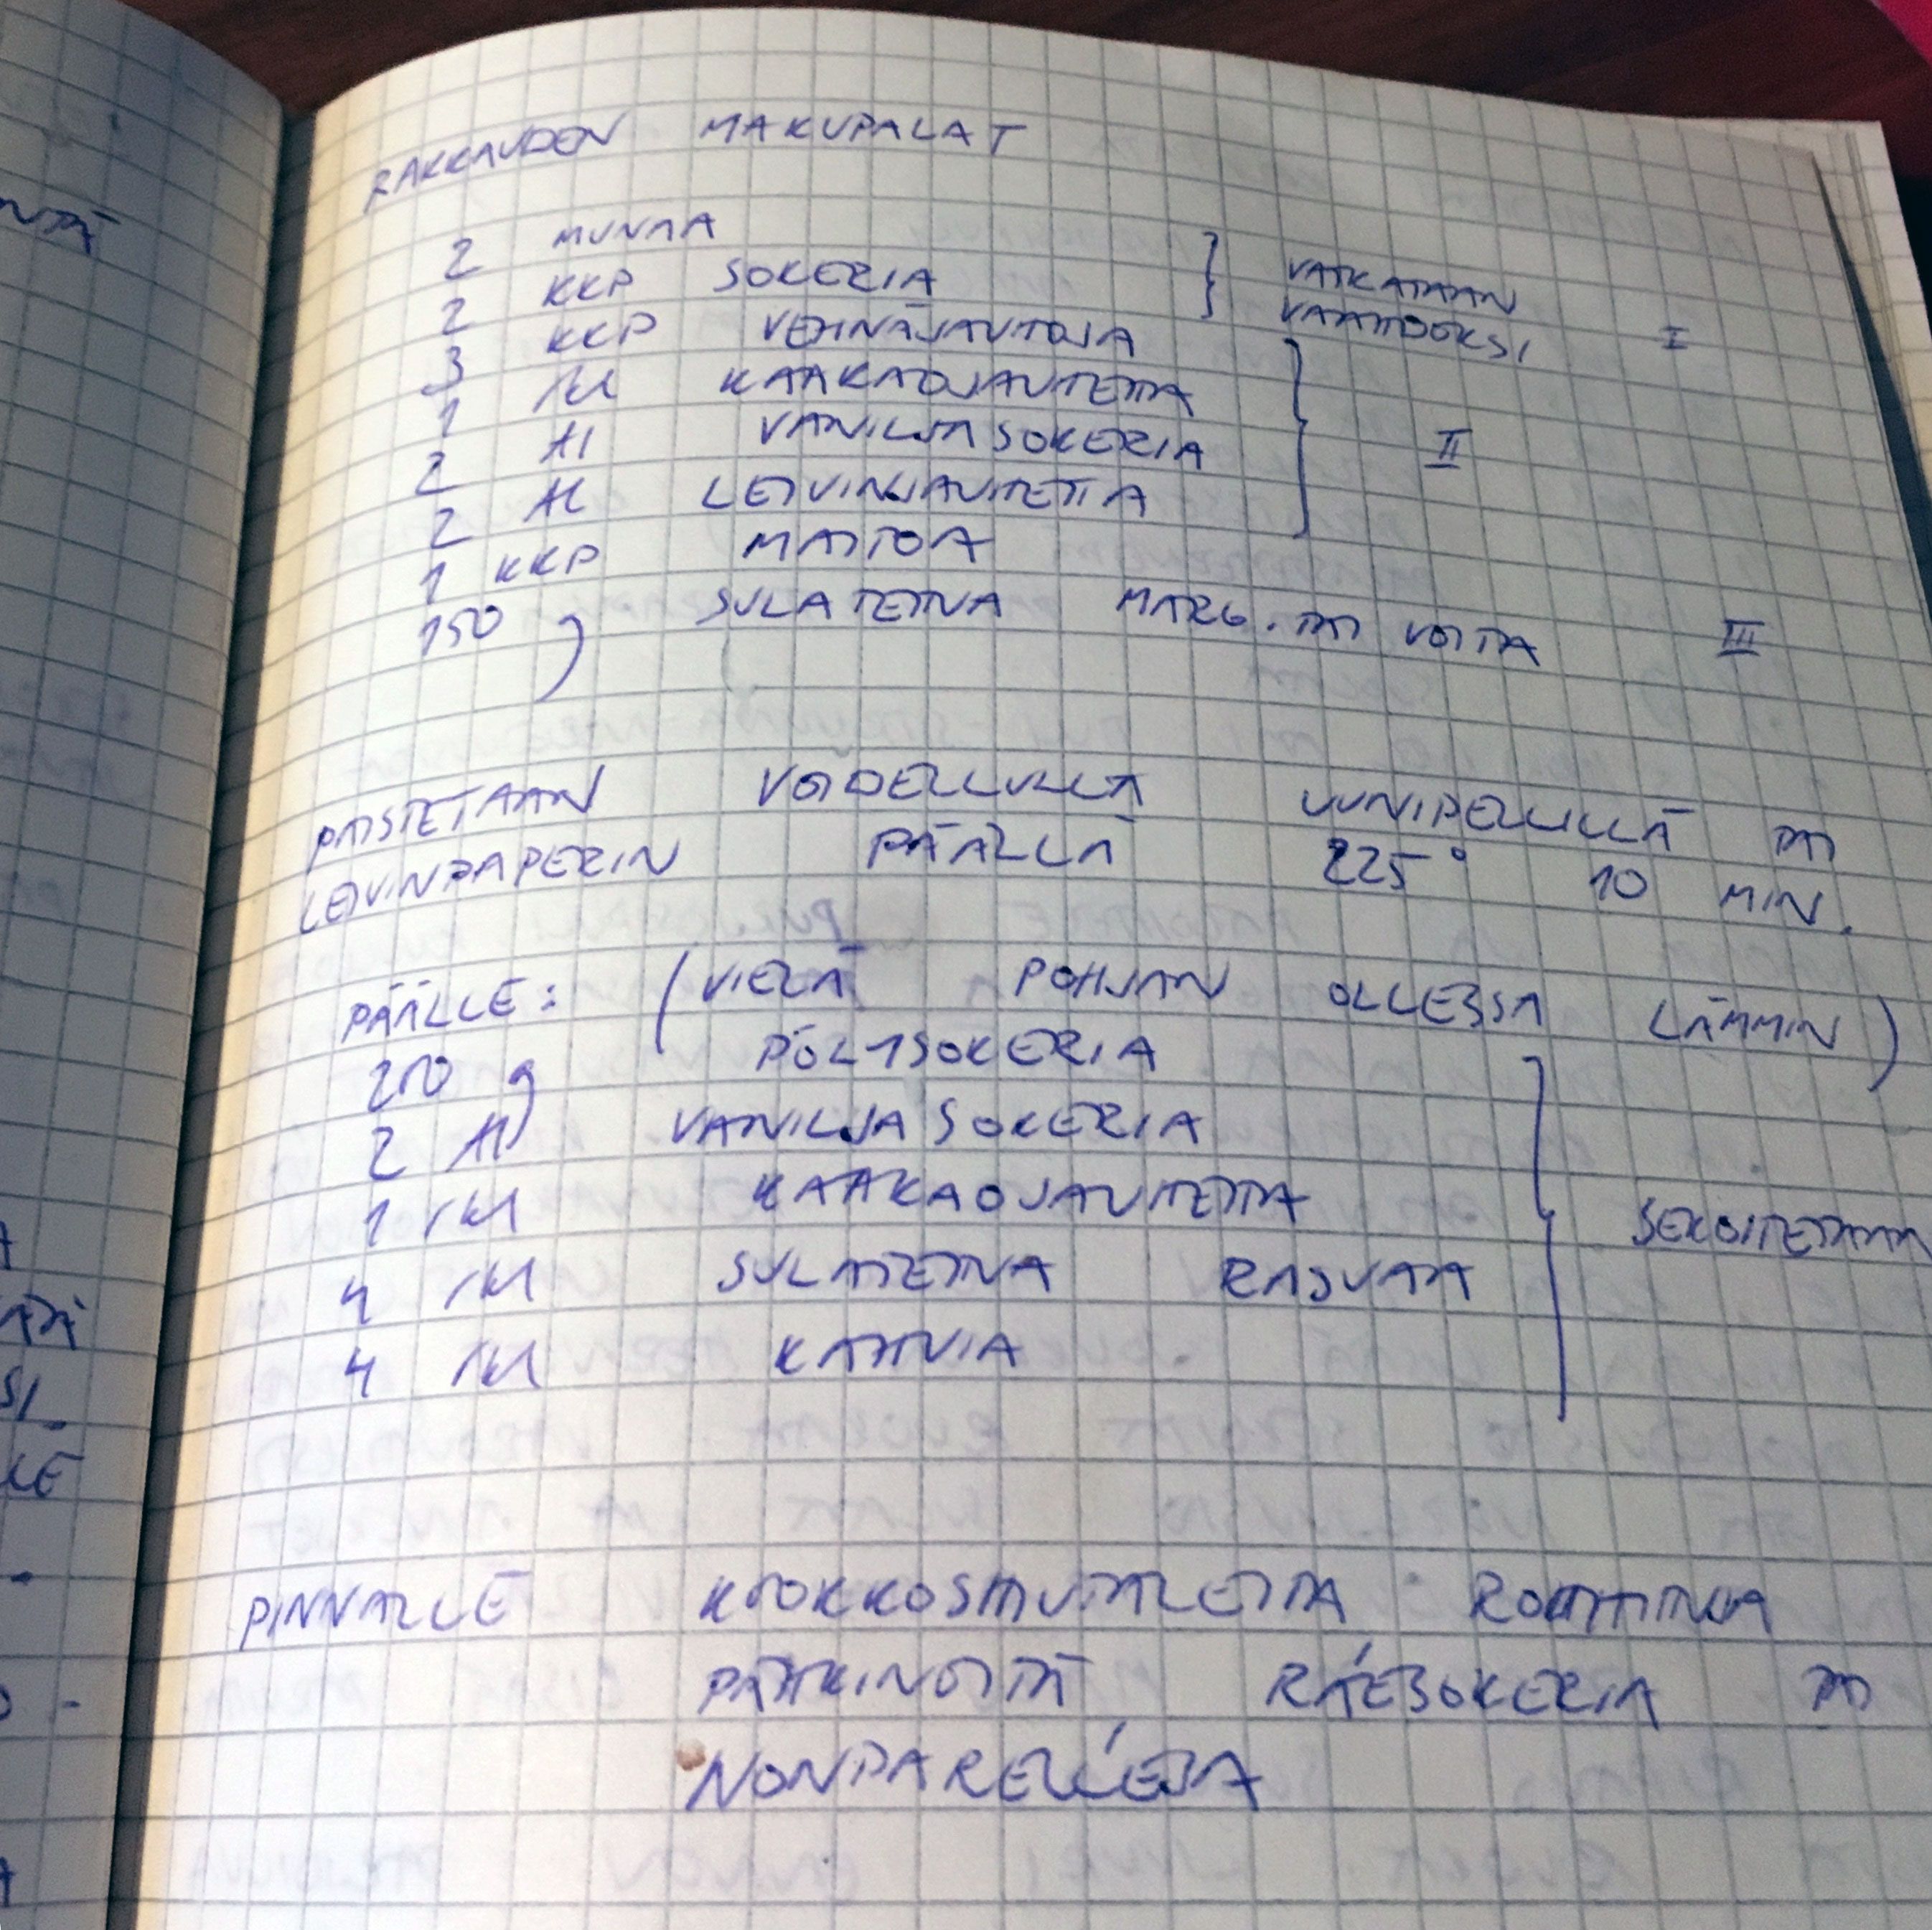 RAKKAUDEN MAKUPALAT
2 MUNAA
2 KKP SOKERIA } VATKATAAN VAAHDOKSI I
3 KKP VEHNÄJAUHOJA
1 rkl KAAKAOJAUHETTA
2 tl VANILJASOKERIA } II
2 tl LEIVINJAUHETTA
1 KKP MAITOA
150 g SULATETTUA MARG. TAI VOITA III
PAISTETAAN VOIDELLULLA UUNIPELLILLÄ TAI
LEIVINPAPERIN PÄÄLLÄ 225° 10 MIN.
PÄÄLLE: (VIELÄ POHJAN OLLESSA LÄMMIN)
g PÖLYSOKERIA
2 tl VANILJASOKERIA
1 rkl KAAKAOJAUHETTA } SEKOITETAAN
4 rkl SULATETTUA RASVAA
4 rkl KAHVIA
PINNALLE KOOKKOSHIUTALEITA ROUHITTUJA
PÄHKINÖITÄ RAESOKERIA TAI
NONPARELLEJA